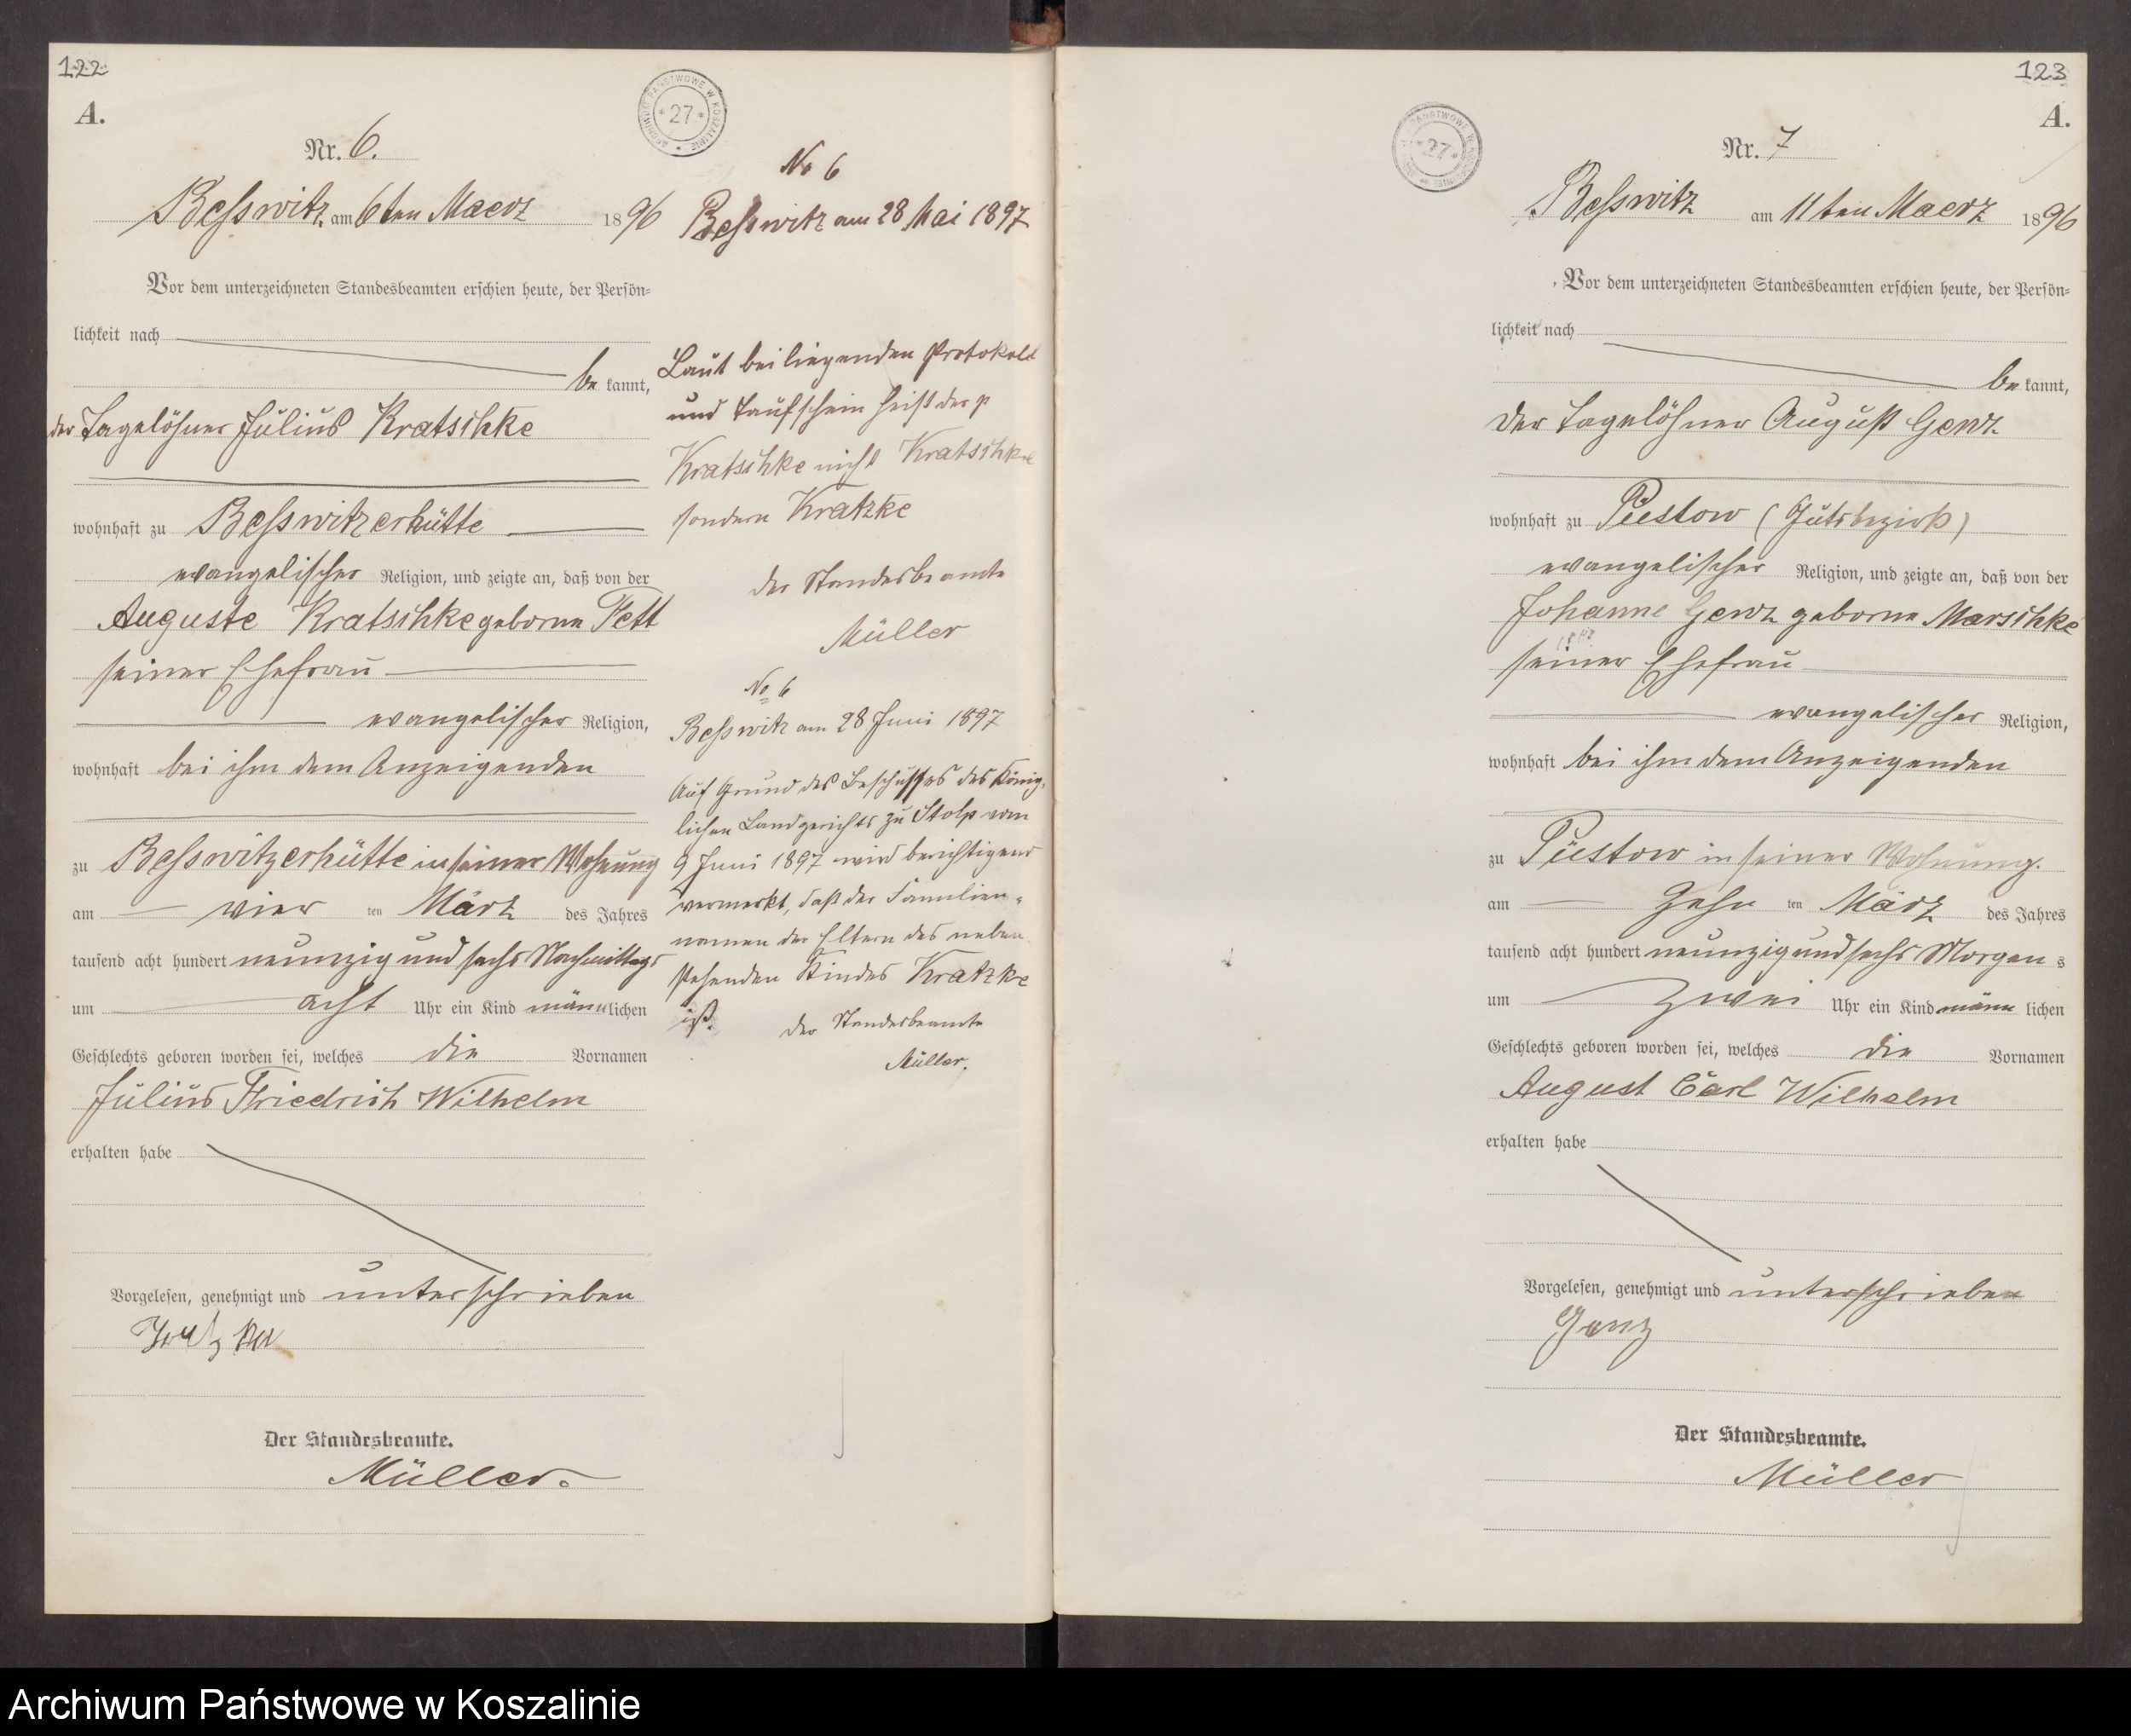 122
A.
ARCHIWUM PAŃSTWOWE W KOSZALINIE
* 27 *
Nr. 6.
Besswitz am 6ten Maerz 1896
Vor dem unterzeichneten Standesbeamten erschien heute, der Persön=
lichkeit nach
be kannt,
der Tagelöhner Julius Kratschke
wohnhaft zu Besswitzerhütte
evangelischer Religion, und zeigte an, daß von der
Auguste Kratschke geborne Fett
seiner Ehefrau
evangelischer Religion,
wohnhaft bei ihm dem Anzeigenden
zu Besswitzerhütte in seiner Wohnung
am vier ten März des Jahres
tausend acht hundert neunzig und sechs Nachmittags
um acht Uhr ein Kind männlichen
Geschlechts geboren worden sei, welches die Vornamen
Julius Friedrich Wilhelm
erhalten habe
Vorgelesen, genehmigt und unterschrieben
Der Standesbeamte.
Müller.
No 6
Besswitz am 28 Mai 1897
Laut beiliegenden Protokoll
und Taufschein heißt der p
Kratschke nicht Kratschke
sondern Kratzke
der Standesbeamte
Müller
No 6
Besswitz am 28 Juni 1897
Auf Grund des Beschusses des König,
lichen Landgerichts zu Stolp vom
9 Juni 1897 wird berichtigend
vermerkt, daß der Familien-
namen der Eltern des neben
stehenden Kindes Kratzke
ist.
der Standesbeamte
Müller.
123
A.
PAŃSTWOWE W
* 27 *
Nr. 7
Besswitz am 11ten Maerz 1896
Vor dem unterzeichneten Standesbeamten erschien heute, der Persön=
lichkeit nach
be kannt,
der Tagelöhner August Genz
wohnhaft zu Püstow (Gutsbezirk)
evangelischer Religion, und zeigte an, daß von der
Johanne Genz geborne Marschke
seiner Ehefrau
evangelischer Religion,
wohnhaft bei ihm dem Anzeigenden
zu Püstow in seiner Wohnung.
am Zehn ten März des Jahres
tausend acht hundert neunzig und sechs Morgens
um Zwei Uhr ein Kind männ lichen
Geschlechts geboren worden sei, welches die Vornamen
August Carl Wilhelm
erhalten habe
Vorgelesen, genehmigt und unterschrieben
Genz
Der Standesbeamte.
Müller
Archiwum Państwowe w Koszalinie